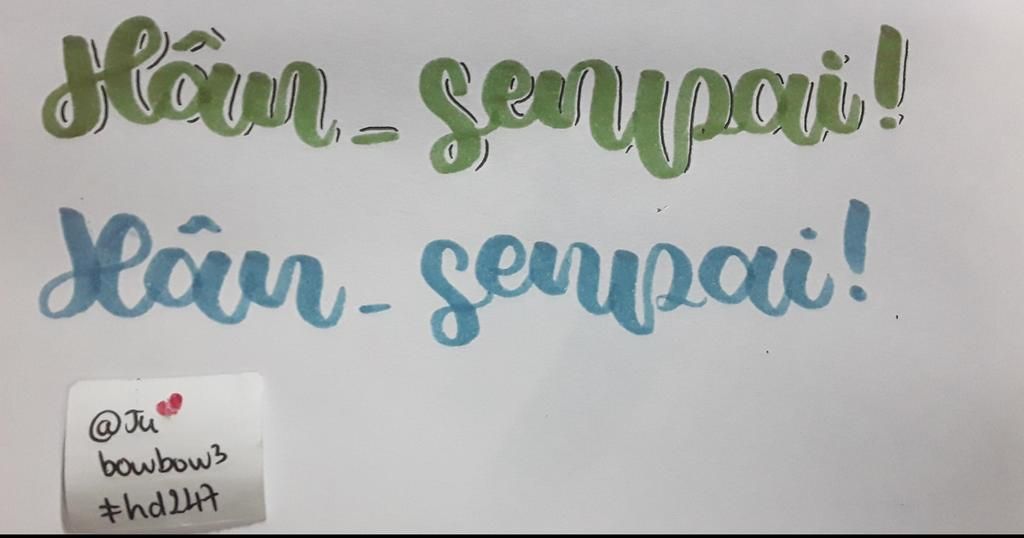 Hân_senpai!
Hân_senpai!
@Ju
bowbow3
#hd247